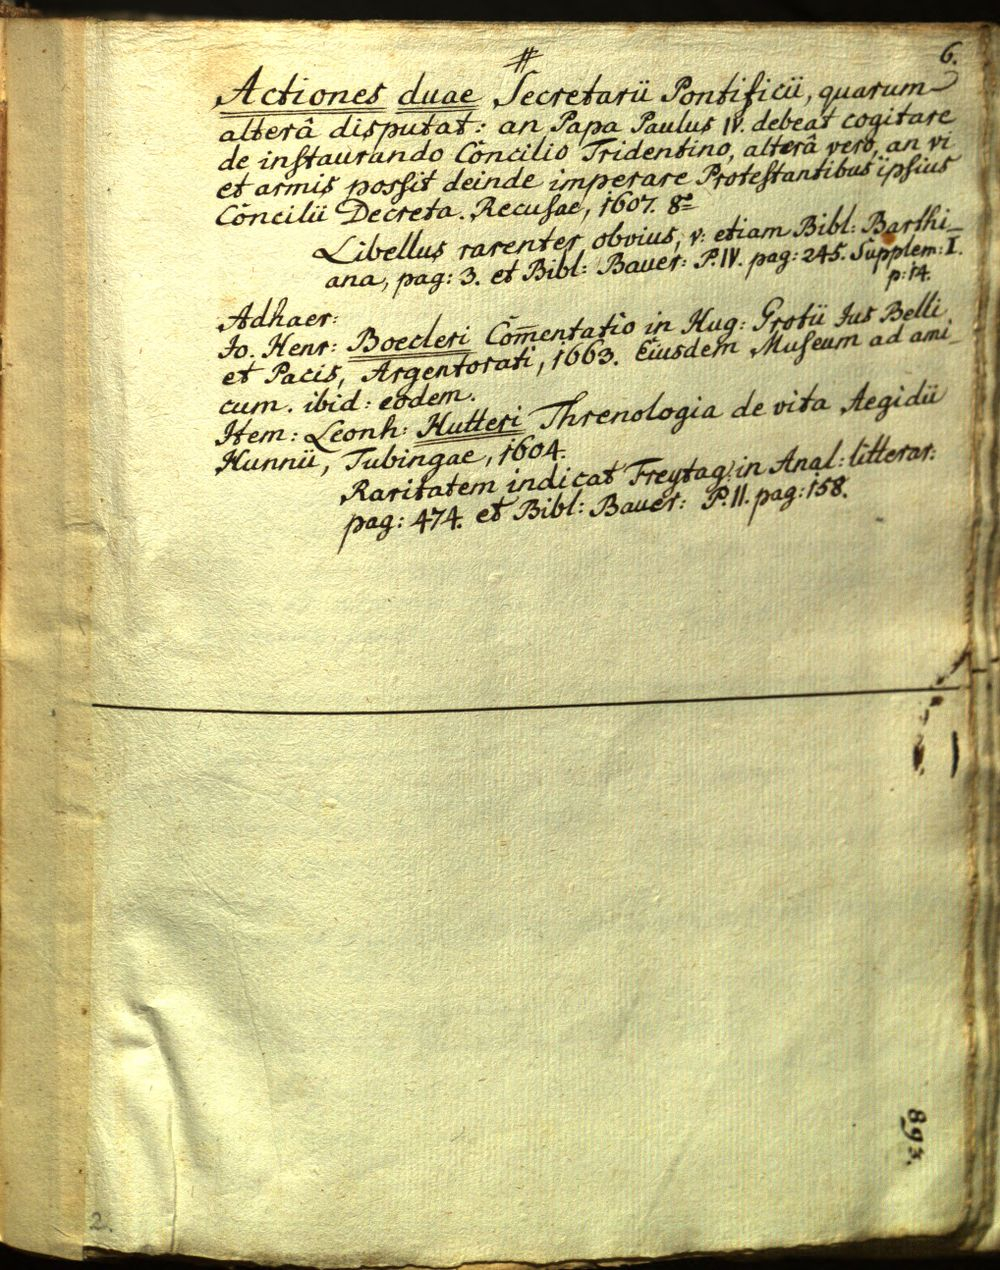 #
6.
Actiones duae Secretarii Pontificii, quarum
alterâ disputat: an Papa Paulus IV. debeat cogitare
de instaurando Concilio Tridentino, alterâ vero, an vi
et armis possit deinde imperare Protestantibus ipsius
Concilii Decreta. Recusae, 1607. 8º
Libellus rarenter obvius, v: etiam Bibl: Barthi-
ana, pag: 3. et Bibl: Bauer: P.IV. pag: 245. Supplem: I.
p: 14.
Adhaer:
Jo. Henr: Boecleri Com̅entatio in Hug: Grotii Jus Belli
et Pacis, Argentorati, 1663. Eiusdem Museum ad ami-
cum. ibid: eodem.
Item: Leonh: Hutteri Threnologia de vita Aegidii
Hunnii, Tubingae, 1604.
Raritatem indicat Freytag: in Anal: litterar:
pag: 474. et Bibl: Bauer: P.II. pag: 158.
893.
2.